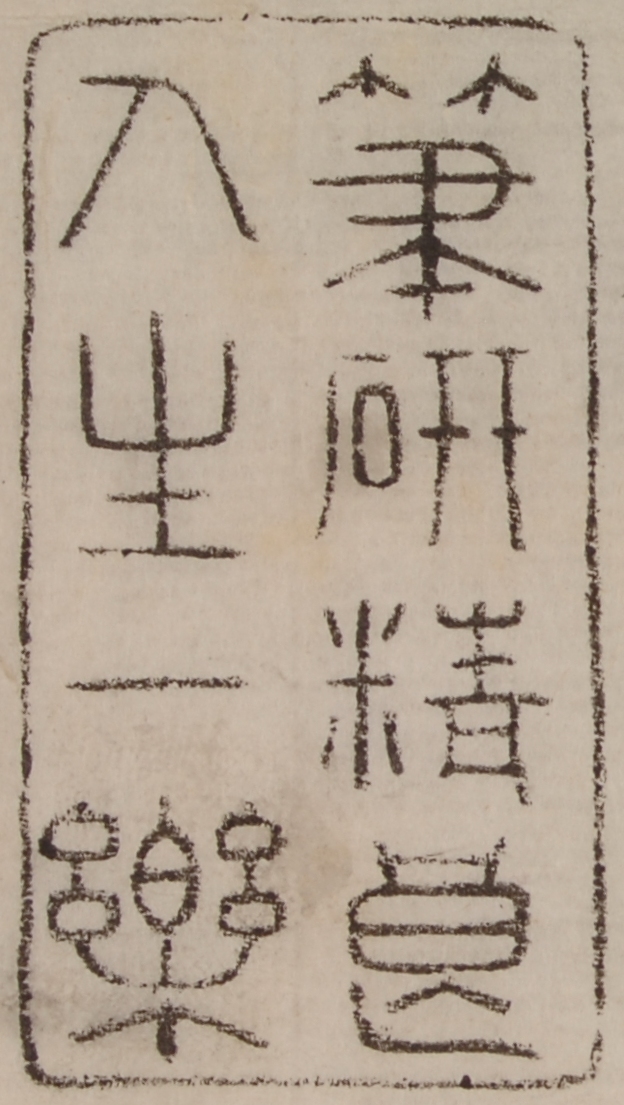 筆研精良
人生一樂